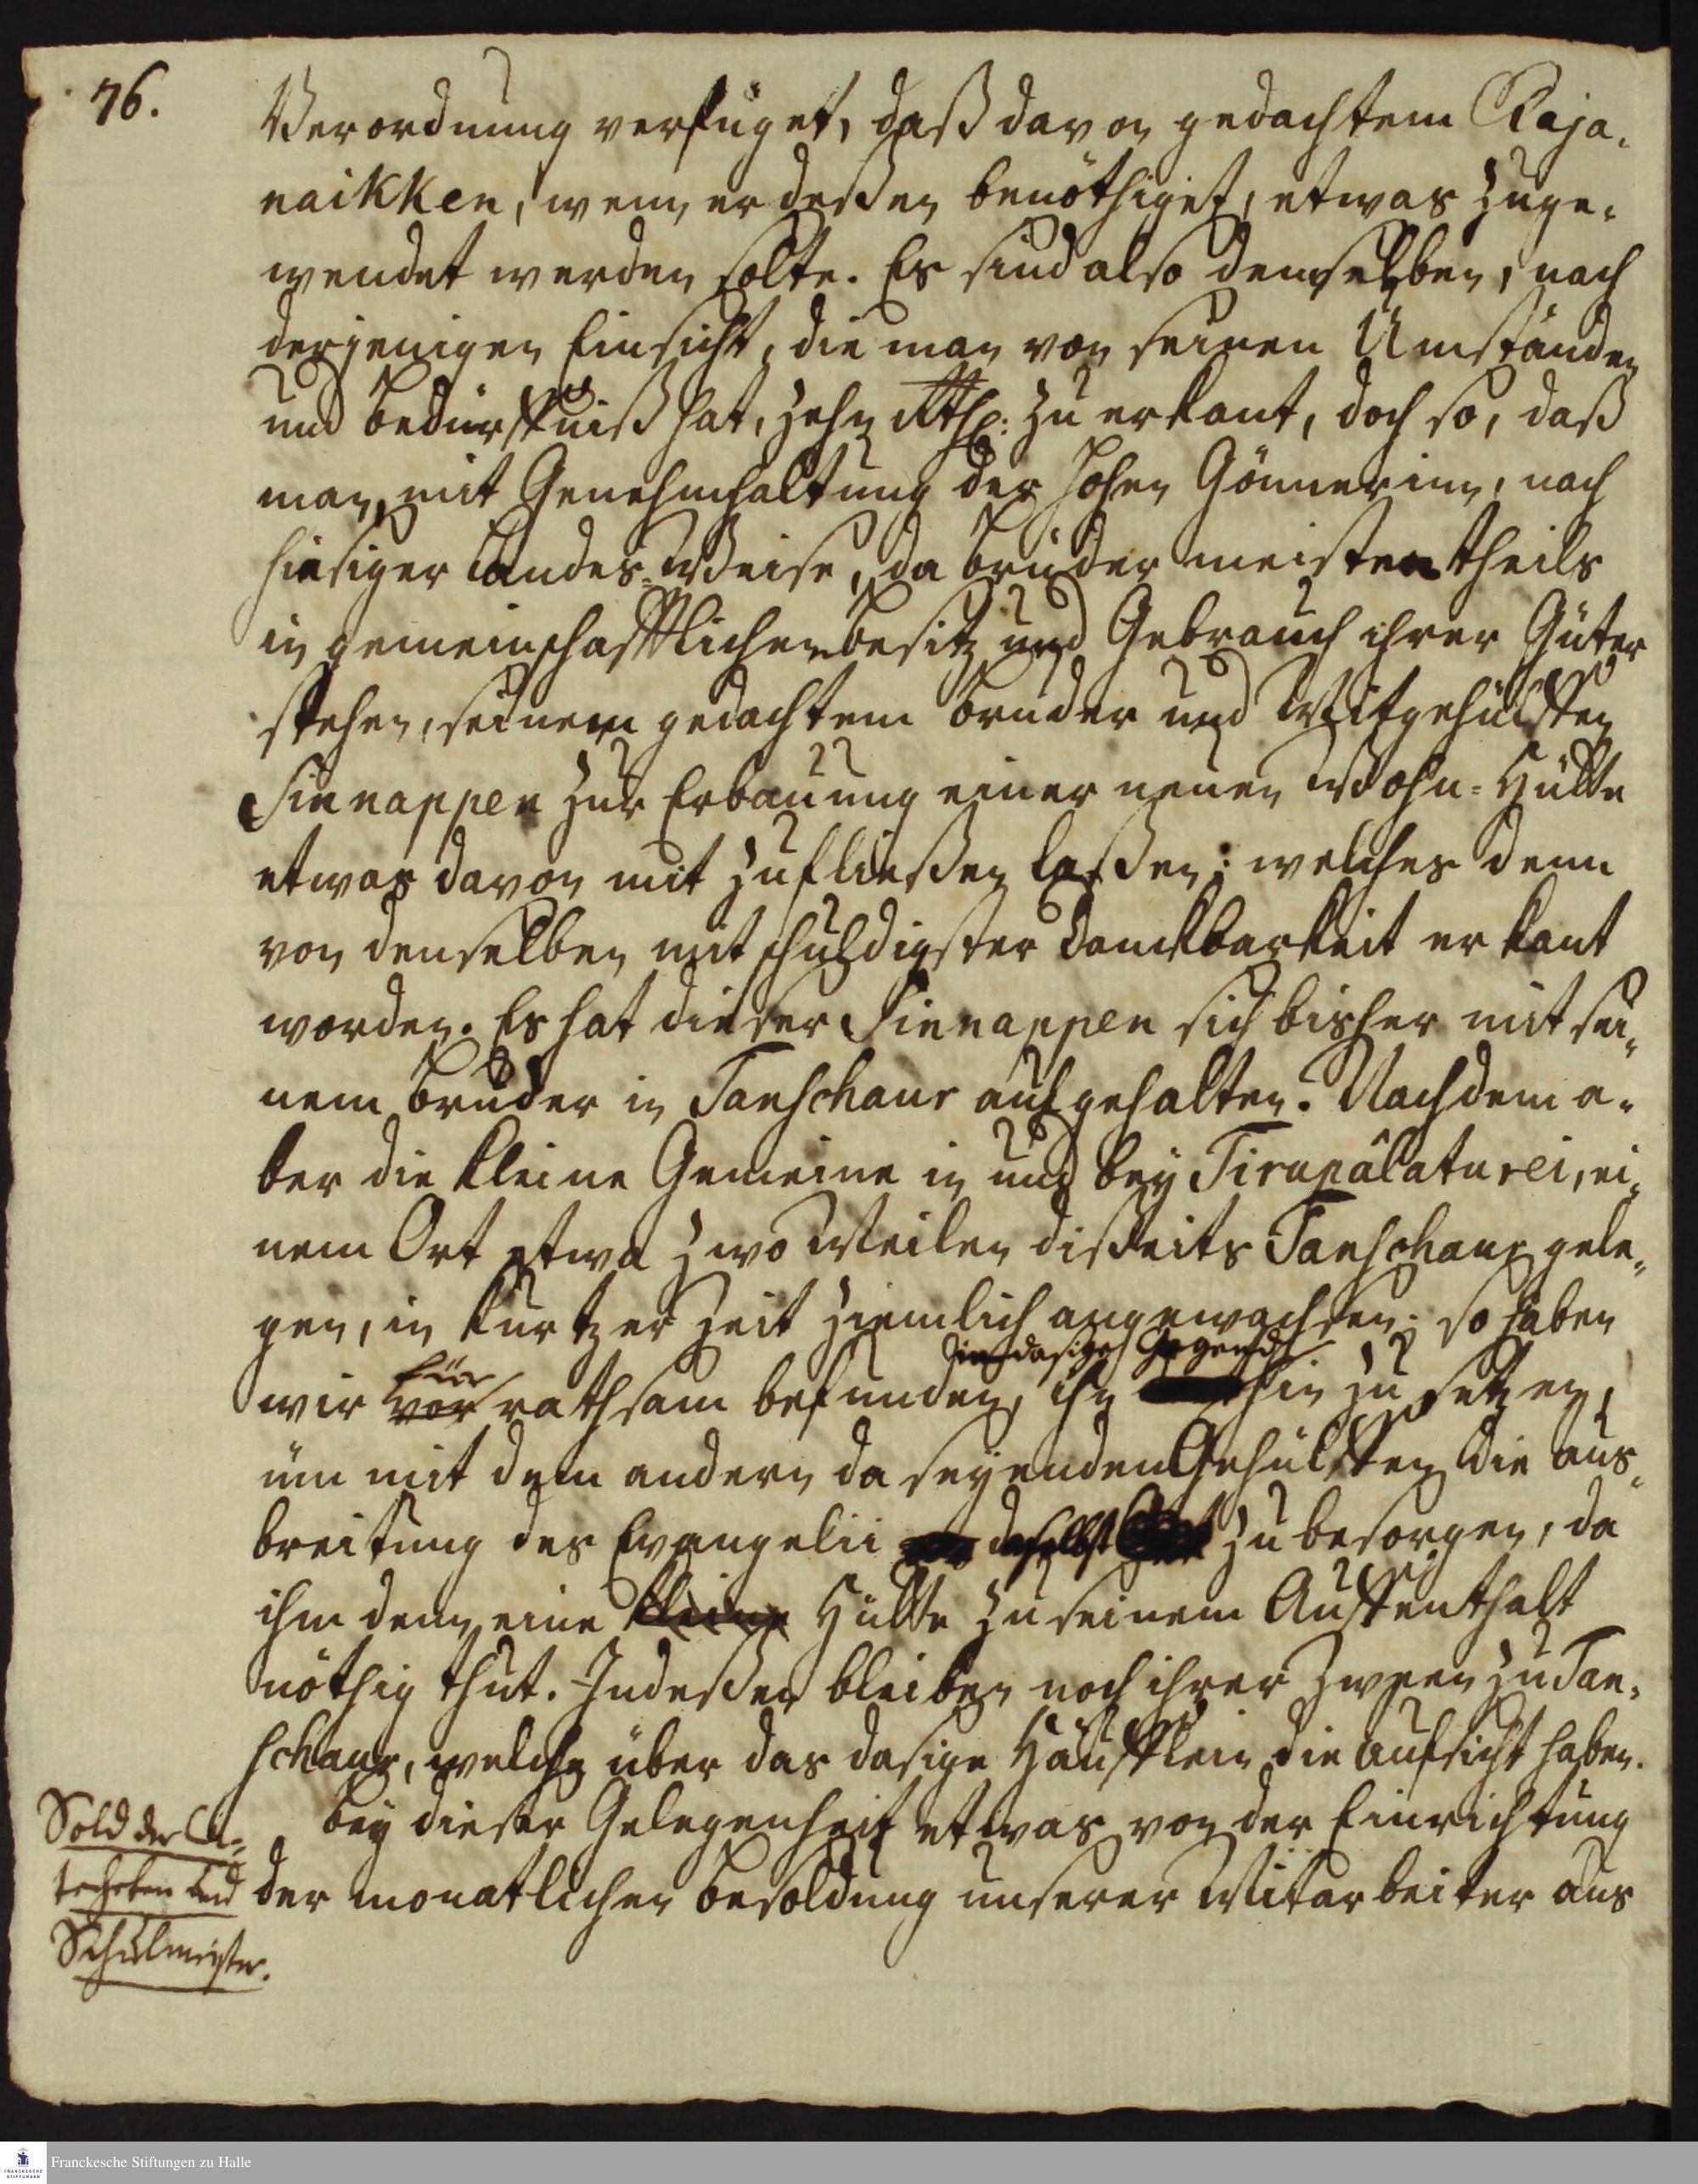 76.
Verordnung verfüget, daß davon gedachtem Raja-
naikken, wenn er deßen benöthiget, etwas zuge-
wendet werden solte. Es sind also demselben, nach
derjenigen Einsicht, die man von seinen Umständen
und Bedürfniß hat, zehn Rthl: zu erkant, doch so, daß
man, mit Genehmhaltung der hohen Gönnerinn, nach
hiesiger Landes-Weise, da Brüder meistentheils
in gemeinschafftlichen Besitz und Gebrauch ihrer Güter
stehen, seinem gedachtem Bruder und Mitgehülffen
Sinnappen zur Erbauung einer neuen Wohn-Hütte
etwas davon mit zufließen laßen: welches denn
von denselben mit schuldigster Danckbarkeit erkant
worden. Es hat dieser Sinnappen sich bisher mit sei-
nem Bruder in Tanschaur aufgehalten. Nachdem a-
ber die kleine Gemeine in und bey Tirupâlaturei, ei-
nem Ort etwa zwo Meilen disseits Tanschaur gele-
gen, in kurtzer Zeit ziemlich angewachsen; so haben
in dasige Gegend
für
wir vor rathsam befunden, ihn hin zu setzen,
üm mit dem andern da seyenden Gehülffen die Aus-
breitung des Evangelii daselbst zu besorgen, da
ihm denn eine kleine Hütte zu seinem Auffenthalt
nöthig thut. Indeßen bleiben noch ihrer zween zu Tan-
schaur, welche über das dasige Häufflein die Aufsicht haben.
Bey dieser Gelegenheit etwas von der Einrichtung
der monatlichen Besoldung unserer Mitarbeiter aus
Sold der Ca-
techeten und
Schulmeister.
Franckesche Stiftungen zu Halle
FRANCKESCHE
STIFTUNGEN